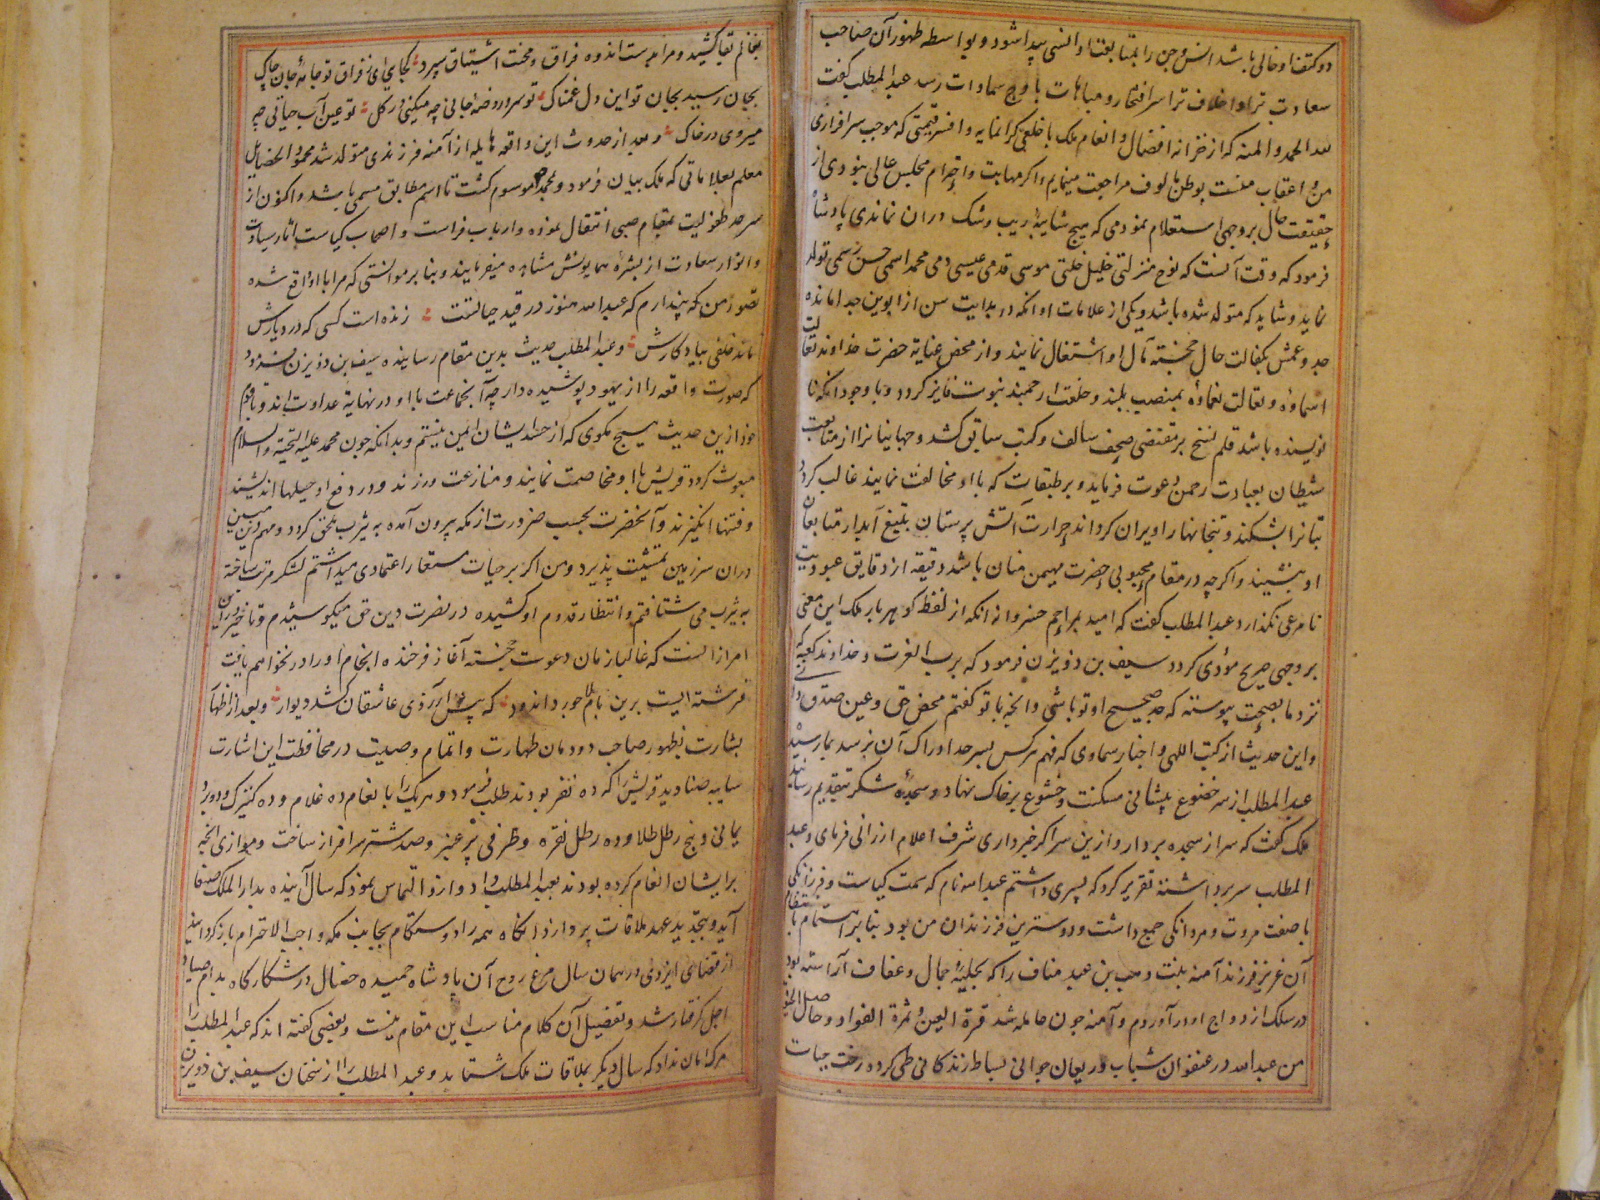 دو کتف او خالی باشد انس و جن را بمتابعت او انسی پیدا شود و بواسطه ظهور آن صاحب
سعادت ترا و اخلاف ترا سر افتخار و مباهات باوج سماوات رسد عبدالمطلب گفت
لله الحمد والمنه که از خزانه افضال و انعام ملک با خلعتی کرانمایه و افسر قیمتی که موجب سرافرازی
من و اعقاب منست بوطن مالوف مراجعت مینمایم و اکر مهابت و احترام مجلس عالی نبودی از
حقیقت حال بر وجهی استعلام نمودمی که هیچ شایبهٔ ریب و شک در ان نماندی پادشاه
فرمود که وقت آنست که نوح منزلتی خلیل خلتی موسی قدمی عیسی دمی محمد اسمی حسن رسمی تولد
نماید و شاید که متولد شده باشد و یکی از علامات او انکه در بدایت سن از ابوین جدا مانده
جد و عمش بکفالت حال خجسته مآل او اشتغال نمایند و از محض عنایة حضرت خداوند تعالت
اسماؤه و تعالت نعماؤه بمنصب بلند و خلعت ارجمند نبوت فایز کردد و با وجود انکه نا
نویسنده باشد قلم نسخ بر مقتضی صحف سالف و کتب سابق کشد و جهانیانرا از متابعت
شیطان بعبادت رحمن دعوت فرماید و بر طبقات که با او مخالفت نمایند غالب کردد
بتانرا بشکند و بتخانها را ویران کرداند حرارت آتش پرستان بتیغ آبدار متابعان
او بنشیند و اکرچه در مقام محبوبی حضرت مهیمن منان باشد دقیقه از دقایق عبودیت
نامرعی نکذارد عبدالمطلب گفت که امید بمراحم خسروانه انکه از لفظ کوهربار ملک این معنی
بر وجهی صریح مؤدی کردد سیف بن ذویزن فرمود که برب العزت و خداوند کعبه که
نزد ما بصحت پیوسته که جد صحیح او تو باشی و انچه با تو کفتم محض حق و عین صدق دان
و این حدیث از کتب اللهی و اخبار سماوی که فهم هرکس بسرحد ادراک آن نرسد بما رسیده
عبدالمطلب از سر خضوع پیشانی مسکنت و خشوع بر خاک نهاد و سجدهٔ شکر بتقدیم رسانید
ملک گفت که سر از سجده بردار و از این سر اکر خبرداری شرف اعلام ارزانی فرمای و عبد
المطلب سر برداشته تقریر کرد که پسری داشتم عبدالله نام که سمت کیاست و فرزانکی
با صفت مروت و مردانکی جمع داشت و دوسترین فرزندان من بود بنابر اهتمام بانتظام
آن عزیز فرزند آمنه بنت وهب بن عبد مناف را که بحلیهٔ جمال و عفاف آراسته بود
در سلک ازدواج او در آوردم و آمنه چون حامله شد قرة العین و ثمرة الفواد و حاصل الحیوة
من عبدالله در عنفوان شباب و ریعان جوانی بساط زندکانی طی کرده رخت حیات
بخانم بقا کشید و مرا بدست اندوه فراق و محنت اشتیاق سپرد کجایی ای ز فراق تو جامهٔ جان چاک
بجان رسید بجان تو این دل غمناک تو سرو روضهٔ جانی چه میکنی در کل تو عین آب حیاتی چه
میروی در خاک و بعد از حدوث این واقعه هایله از آمنه فرزندی متولد شد محمود الخصایل
معلم بعلاماتی که ملک بیان فرمود و بمحمد موسوم کشت تا اسم مطابق مسمی باشد و اکنون از
سرحد طفولیت بمقام صبی انتقال نموده و ارباب فراست و اصحاب کیاست اثار سیادت
و انوار سعادت از بشرهٔ همایونش مشاهده میفرمایند و بنا بر موانستی که مرا با او واقع شده
تصور من که پندارم که عبدالله هنوز در قید حیاتست زنده است کسی که در دیارش
ماند خلفی بیادکارش و عبدالمطلب حدیث بدین مقام رسانیده سیف بن ذویزن فرمود
که صورت واقعه را از یهود پوشیده دار چه آنجماعت با او در نهایة عداوت اند و با قوم
خود از این حدیث هیچ مکوی که از حسد ایشان ایمن نیستم و بدانکه چون محمد علیه التحیة والسلام
مبعوث کردد قریش با او مخاصمت نمایند و منازعت ورزند و در دفع او حیلها اندیشند
و فتنها انکیزند و آنحضرت بحسب ضرورت از مکه بیرون آمده به یثرب ملحق کردد و مهم دین مبین
در ان سرزمین تمشیت پذیرد و من اکر بر حیات مستعار اعتمادی میداشتم لشکر مرتب ساخته
به یثرب می شتافتم و انتظار قدوم او کشیده در نصرت دین حق میکوشیدم و تاخیر در این
امر از انست که غالبا زمان دعوت خجسته آغاز فرخنده انجام او را در نخواهم یافت
فرشته ایست برین بام لاجورد اندود که پیش آرزوی عاشقان کشد دیوار و بعد از اظهار
بشارت بظهور صاحب دودمان طهارت و اتمام وصیت در محافظت این اشارت
سایر صنادید قریش را که ده نفر بودند طلب فرمود و هریک را بانعام ده غلام و ده کنیزک و دو برد
یمانی و پنج رطل طلا و ده رطل نقره و ظرفی پر عنبر و صد شتر سرافراز ساخت و موازی انچه
بر ایشان انعام کرده بودند بعبدالمطلب داد و ازو التماس نمود که سال آینده بدارالملک صنعا
آید و بتجدید عهد ملاقات پردازد انکاه همه را دوستکام بجانب مکه واجب الاحترام باز کردانید
از قضای ایزدی در همان سال مرغ روح آن پادشاه حمیده خصال در شکارگاه بدام صیاد
اجل کرفتار شد و تفصیل آن کلام مناسب این مقام نیست و بعضی کفته اند که عبدالمطلب را
مرک امان نداد که سال دیکر بملاقات ملک شتابد و عبدالمطلب را از سخنان سیف بن ذویزن